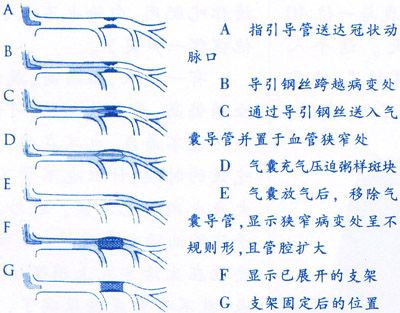 A
B
C
D
E
F
G
A 指引导管送达冠状动
脉口
B 导引钢丝跨越病变处
C 通过导引钢丝送入气
囊导管并置于血管狭窄处
D 气囊充气压迫粥样斑块
E 气囊放气后，移除气
囊导管,显示狭窄病变处呈不
规则形,且管腔扩大
F 显示已展开的支架
G 支架固定后的位置